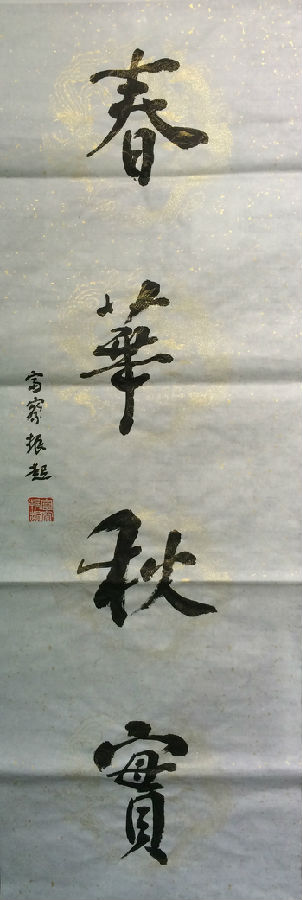 春華秋實
富察振超